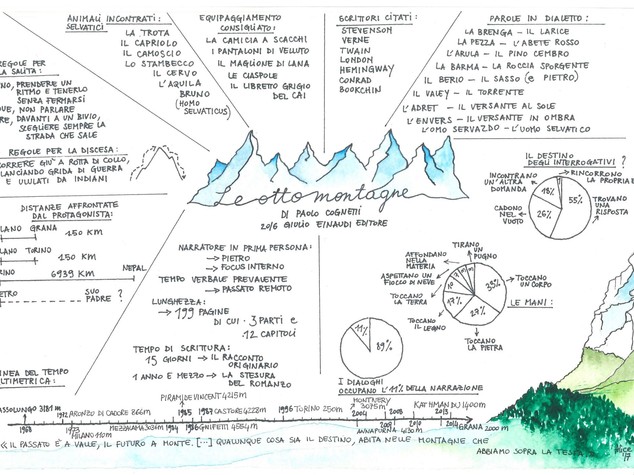 ANIMALI INCONTRATI:
SELVATICI
LA TROTA
IL CAPRIOLO
IL CAMOSCIO
LO STAMBECCO
IL CERVO
L'AQUILA
BRUNO
(HOMO
SELVATICUS)
EQUIPAGGIAMENTO
CONSIGLIATO:
LA CAMICIA A SCACCHI
I PANTALONI DI VELLUTO
IL MAGLIONE DI LANA
LE CIASPOLE
IL LIBRETTO GRIGIO
DEL CAI
SCRITTORI CITATI:
STEVENSON
VERNE
TWAIN
LONDON
HEMINGWAY
CONRAD
BOOKCHIN
PAROLE IN DIALETTO:
LA BRENGA – IL LARICE
LA PEZZA – L'ABETE ROSSO
L'ARULA – IL PINO CEMBRO
LA BARMA – LA ROCCIA SPORGENTE
IL BERIO – IL SASSO (e PIETRO)
IL VALEY – IL TORRENTE
L'ADRET – IL VERSANTE AL SOLE
L'ENVERS – IL VERSANTE IN OMBRA
L'OMO SERVAZDO – L'UOMO SELVATICO
REGOLE PER
LA SALITA:
PRENDERE UN
RITMO E TENERLO
SENZA FERMARSI
NON PARLARE
DAVANTI A UN BIVIO,
SCEGLIERE SEMPRE LA
STRADA CHE SALE
REGOLE PER LA DISCESA:
CORRERE GIU' A ROTTA DI COLLO,
LANCIANDO GRIDA DI GUERRA
E ULULATI DA INDIANI
Le otto montagne
DI PAOLO COGNETTI
2016 GIULIO EINAUDI EDITORE
DISTANZE AFFRONTATE
DAL PROTAGONISTA:
GRANA
150 KM
TORINO
150 KM
NEPAL
6939 KM
SUO
PADRE ?
NARRATORE IN PRIMA PERSONA:
→ PIETRO
→ FOCUS INTERNO
TEMPO VERBALE PREVALENTE
→ PASSATO REMOTO
LUNGHEZZA:
→ 199 PAGINE
DI CUI · 3 PARTI e
12 CAPITOLI
TEMPO DI SCRITTURA:
15 GIORNI → IL RACCONTO
ORIGINARIO
1 ANNO E MEZZO → LA STESURA
DEL ROMANZO
IL DESTINO
DEGLI INTERROGATIVI ?
INCONTRANO
UN'ALTRA
DOMANDA
RINCORRONO
LA PROPRIA
18%
55%
26%
TROVANO
UNA
RISPOSTA
CADONO
NEL
VUOTO
LE MANI:
TIRANO
UN
PUGNO
AFFONDANO
NELLA
MATERIA
ASPETTANO UN
FIOCCO DI NEVE
TOCCANO
LA TERRA
TOCCANO
IL LEGNO
TOCCANO
LA PIETRA
TOCCANO
UN CORPO
33%
27%
17%
11%
89%
I DIALOGHI
OCCUPANO L'11% DELLA NARRAZIONE
LINEA DEL TEMPO
ALTIMETRICA:
1972 AURONZO DI CADORE 866m
CASTORE 4222m
1996 TORINO 250m
KATHMANDU 1400m
GRANA 2000 m
MILANO 110m
GNIFETTI 4554m
« IL PASSATO È A VALLE, IL FUTURO A MONTE. [...] QUALUNQUE COSA SIA IL DESTINO, ABITA NELLE MONTAGNE CHE
ABBIAMO SOPRA LA TESTA